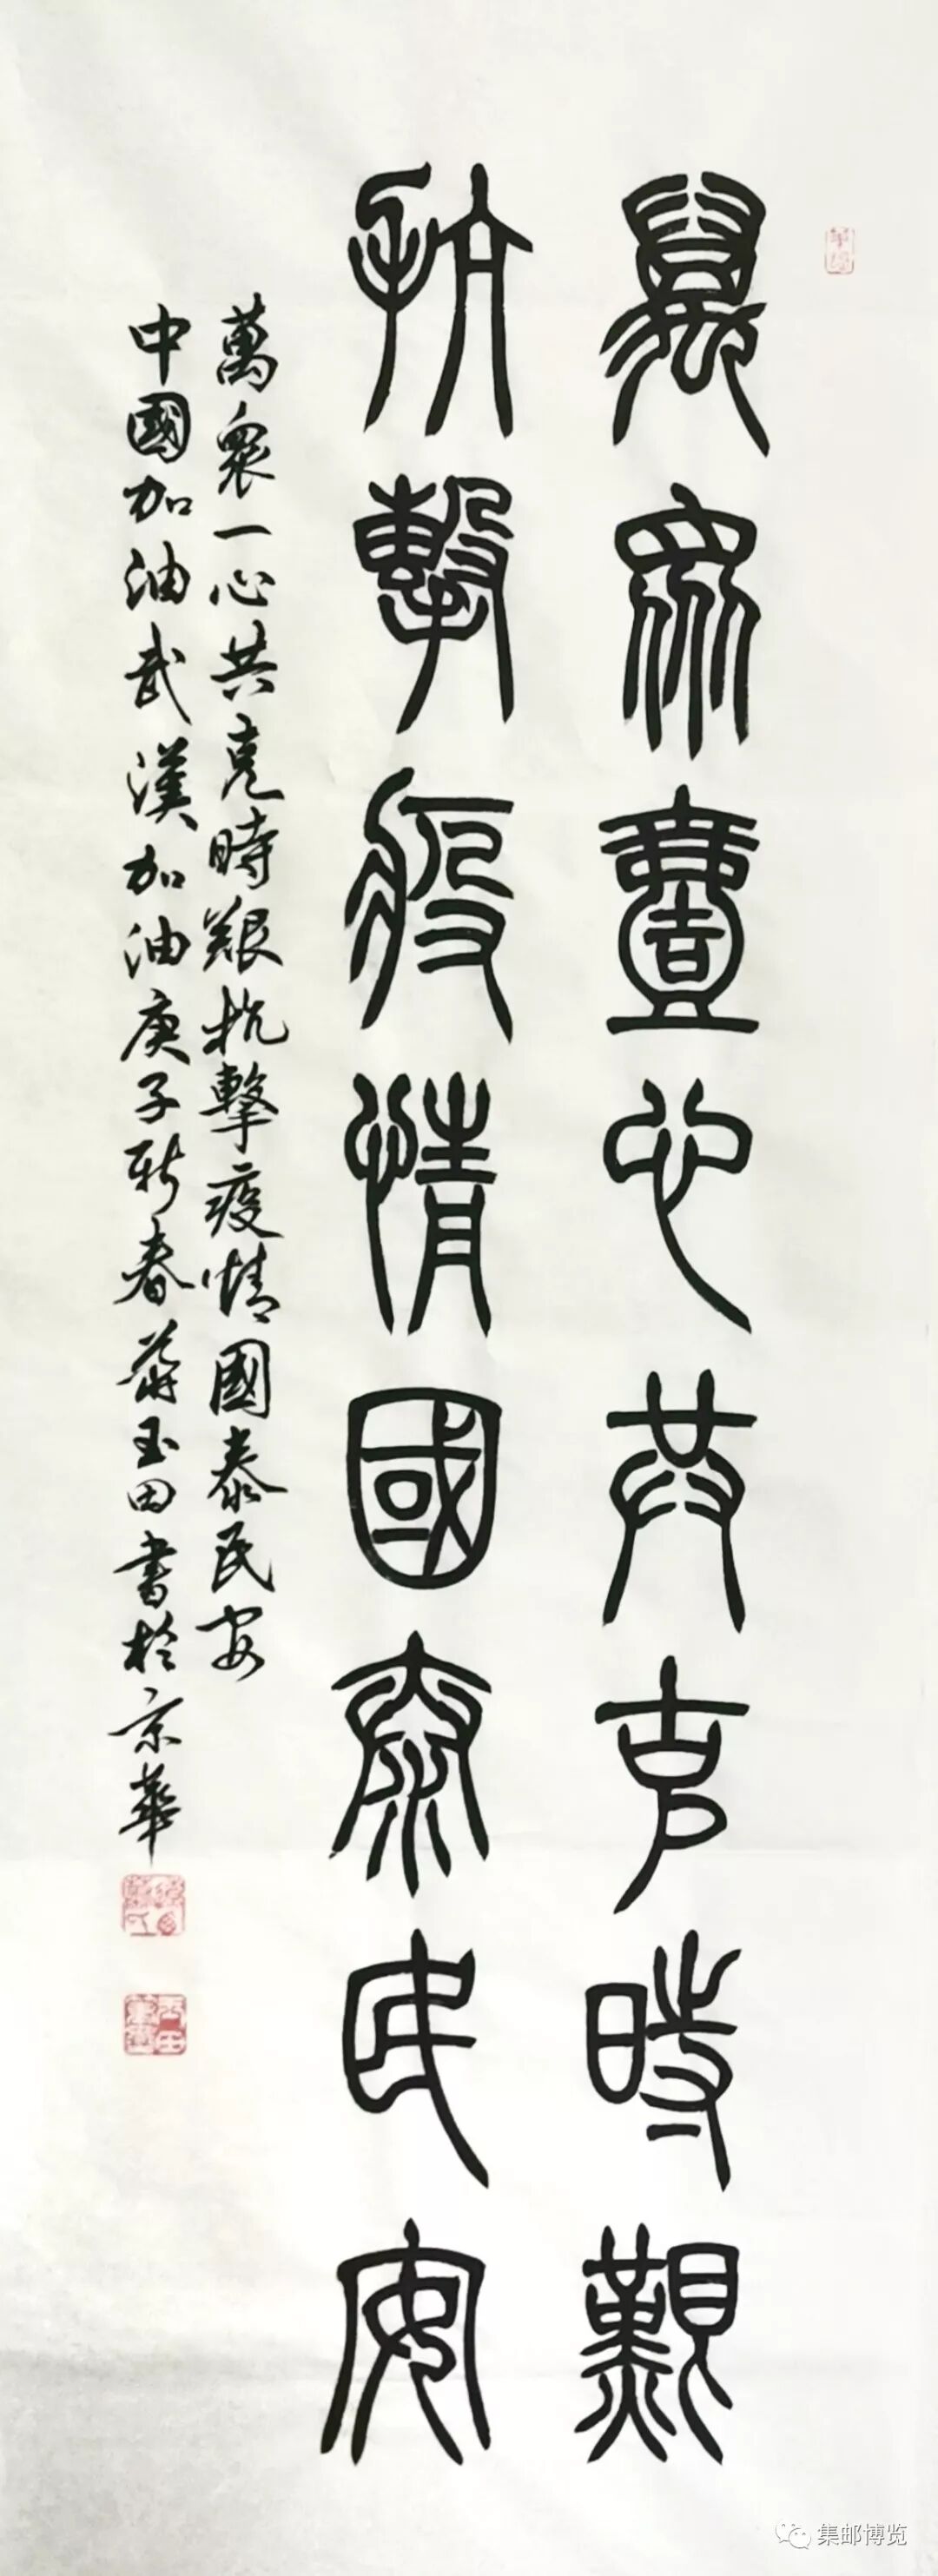 萬眾壹心共克時艱
抗擊疫情國泰民安
萬眾一心共克時艱抗擊疫情國泰民安
中國加油武漢加油庚子新春蕭玉田書於京華
集邮博览